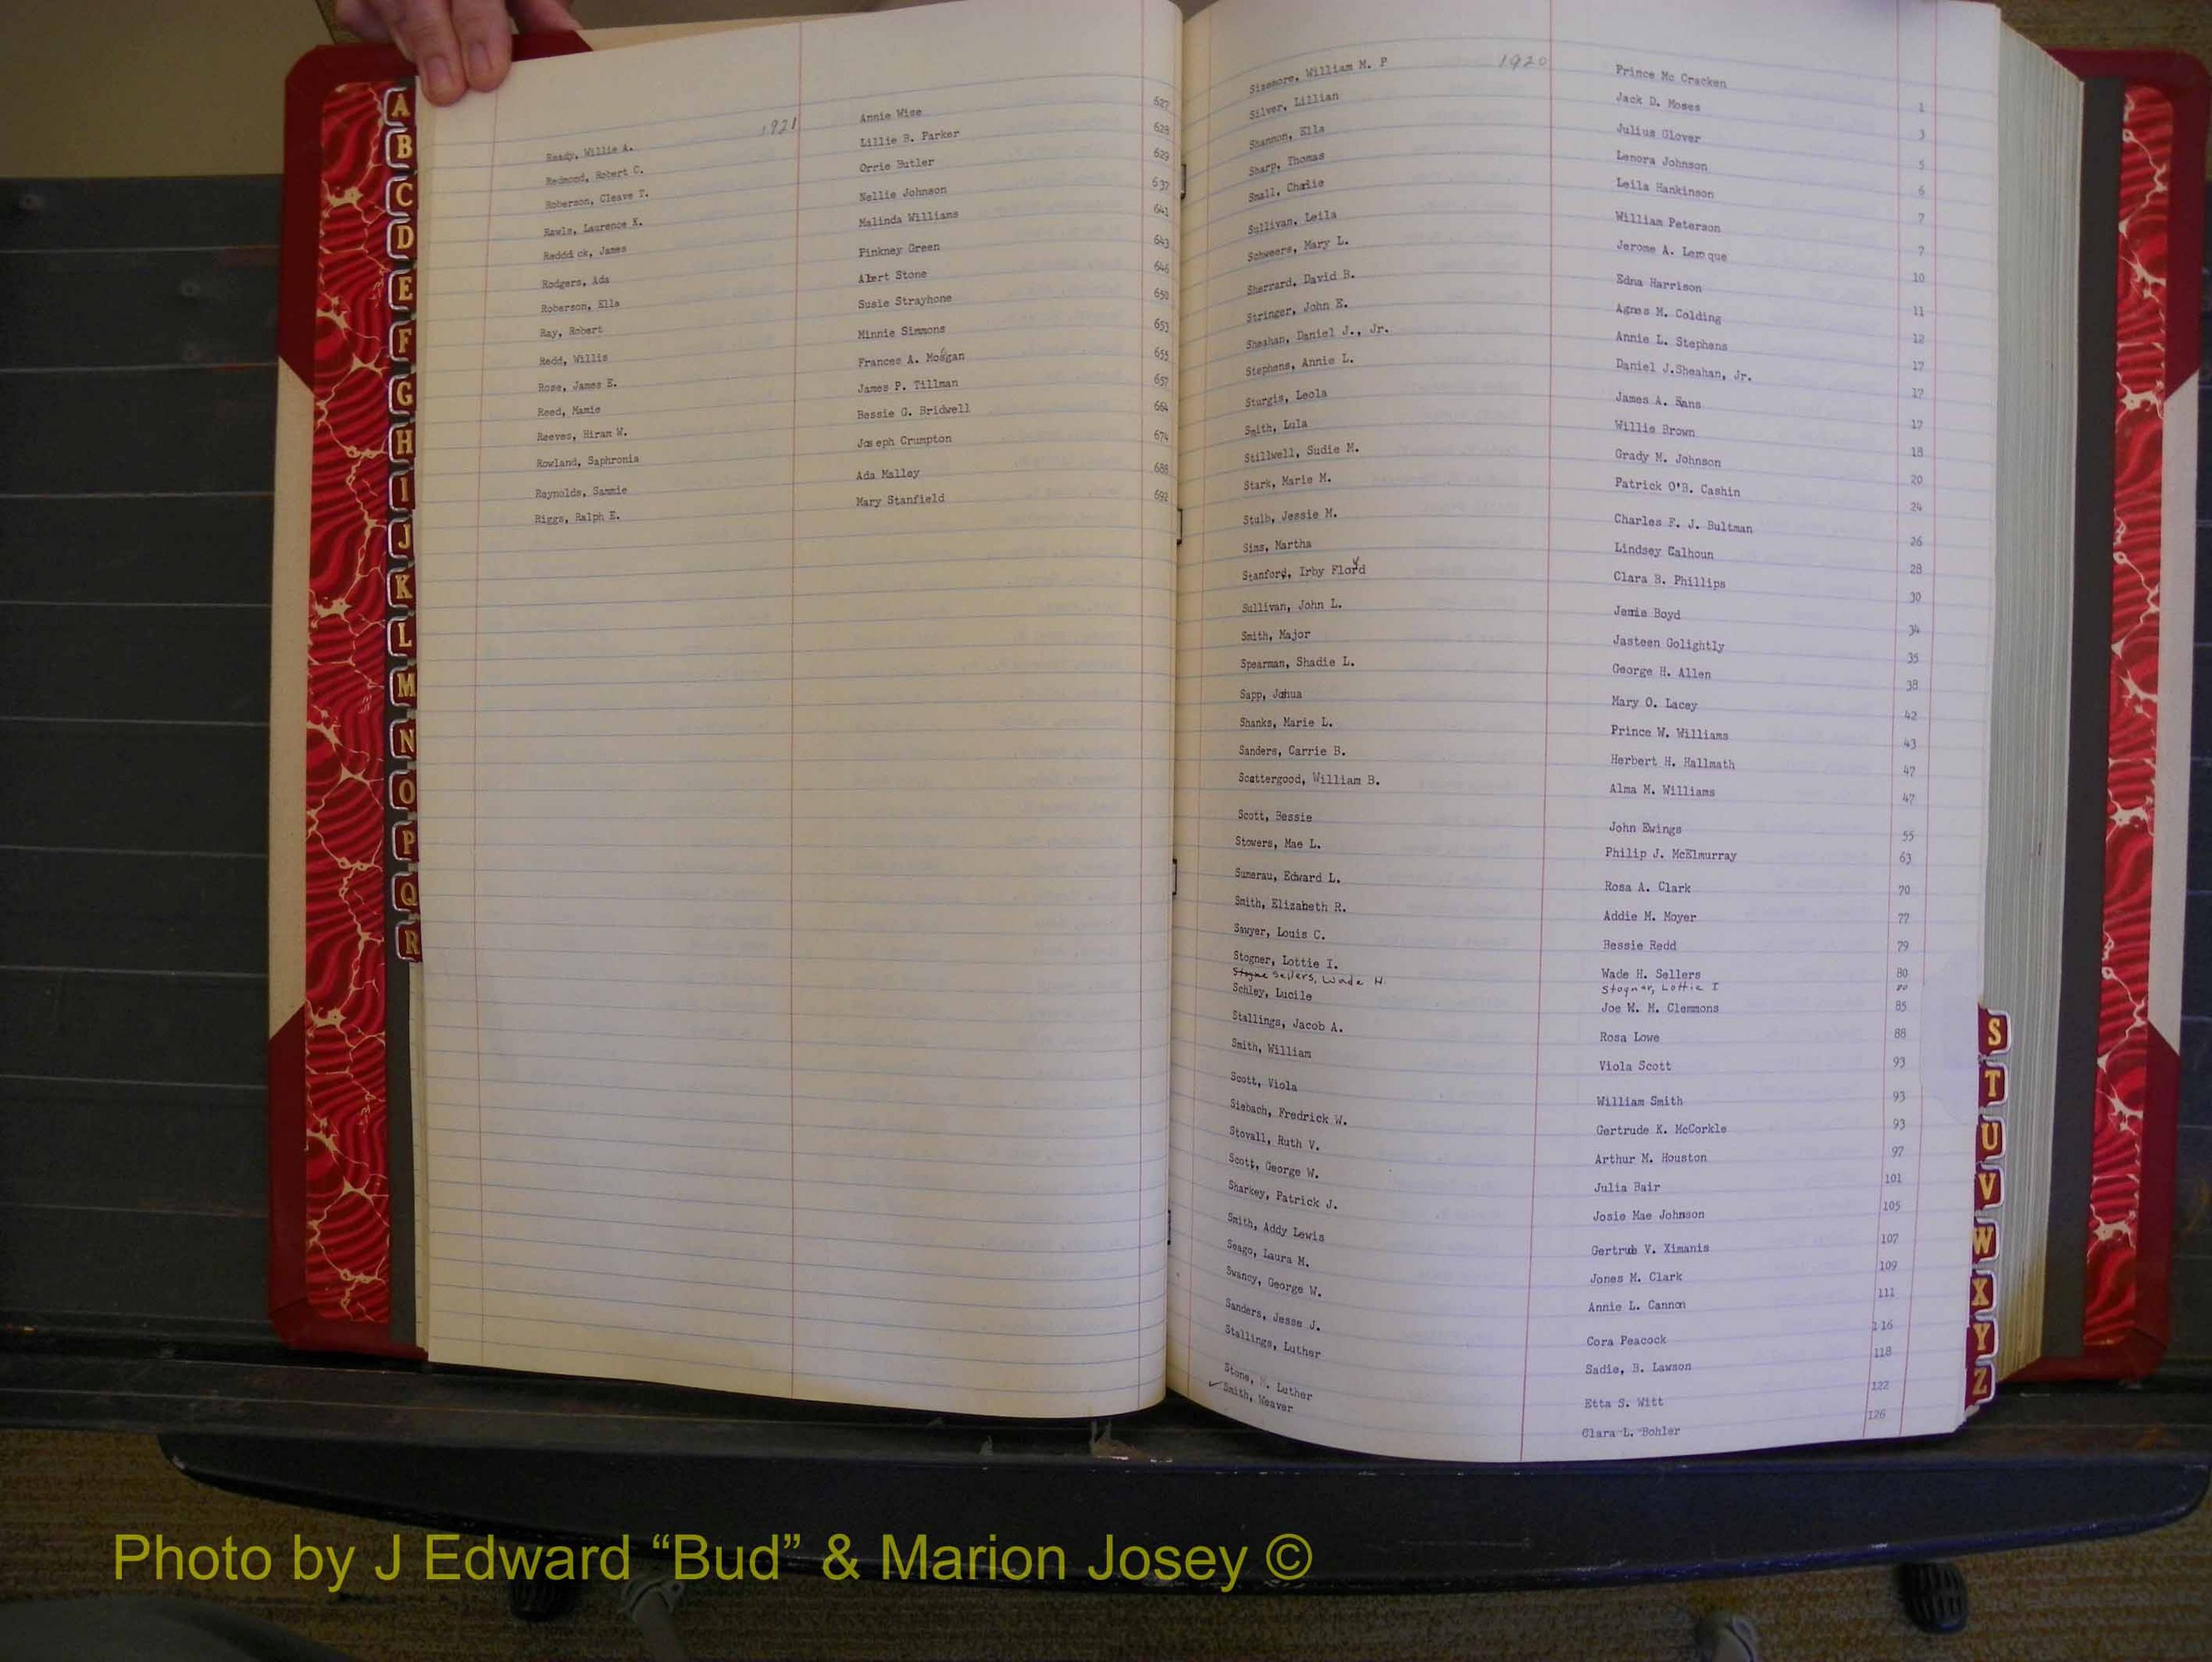 A
B
C
D
E
F
G
H
I
J
K
L
M
N
O
P
Q
R
1921
Ready, Willie A. Annie Wise 627
Redmond, Robert C. Lillie B. Parker 628
Roberson, Cleave T. Orrie Butler 629
Rawls, Laurence K. Nellie Johnson 637
Reddick, James Malinda Williams 641
Rodgers, Ada Pinkney Green 643
Roberson, Ella Albert Stone 646
Ray, Robert Susie Strayhone 650
Redd, Willis Minnie Simmons 653
Rose, James E. Frances A. Morgan 655
Reed, Mamie James P. Tillman 657
Reeves, Hiram W. Bessie G. Bridwell 664
Rowland, Saphronia Joseph Crumpton 674
Reynolds, Sammie Ada Malley 688
Riggs, Ralph E. Mary Stanfield 692
1920
Sizemore, William M. P Prince Mc Cracken 1
Silver, Lillian Jack D. Moses 3
Shannon, Ella Julius Glover 5
Sharp, Thomas Lenora Johnson 6
Small, Charlie Leila Hankinson 7
Sullivan, Leila William Peterson 7
Schweers, Mary L. Jerome A. Leroque 10
Sherrard, David B. Edna Harrison 11
Stringer, John E. Agnes M. Colding 12
Sheahan, Daniel J., Jr. Annie L. Stephens 17
Stephens, Annie L. Daniel J.Sheahan, Jr. 17
Sturgis, Leola James A. Evans 17
Smith, Lula Willie Brown 18
Stillwell, Sudie M. Grady M. Johnson 20
Stark, Marie M. Patrick O'B. Cashin 24
Stulb, Jessie M. Charles F. J. Bultman 26
Sims, Martha Lindsey Calhoun 28
Stanford, Irby Floyd Clara B. Phillips 30
Sullivan, John L. Jennie Boyd 34
Smith, Major Jasteen Golightly 35
Spearman, Shadie L. George H. Allen 38
Sapp, Joshua Mary O. Lacey 42
Shanks, Marie L. Prince W. Williams 43
Sanders, Carrie B. Herbert H. Hallmath 47
Scattergood, William B. Alma M. Williams 47
Scott, Bessie John Ewings 55
Stowers, Mae L. Philip J. McElmurray 63
Sumerau, Edward L. Rosa A. Clark 70
Smith, Elizabeth R. Addie M. Moyer 77
Sawyer, Louis C. Bessie Redd 79
Stogner, Lottie I. Wade H. Sellers 80
Sellers, Wade H. Stogner, Lottie I 80
Schley, Lucile Joe W. M. Clemmons 85
Stallings, Jacob A. Rosa Lowe 88
Smith, William Viola Scott 93
Scott, Viola William Smith 93
Siebach, Fredrick W. Gertrude K. McCorkle 93
Stovall, Ruth V. Arthur M. Houston 97
Scott, George W. Julia Bair 101
Sharkey, Patrick J. Josie Mae Johnson 105
Smith, Addy Lewis Gertrude V. Ximanis 107
Seago, Laura M. Jones M. Clark 109
Swancy, George W. Annie L. Cannon 111
Sanders, Jesse J. Cora Peacock 116
Stallings, Luther Sadie, B. Lawson 118
Stone, Luther Etta S. Witt 122
Smith, Weaver Clara L. Bohler 126
S
T
U
V
W
X
Y
Z
Photo by J Edward “Bud” & Marion Josey ©